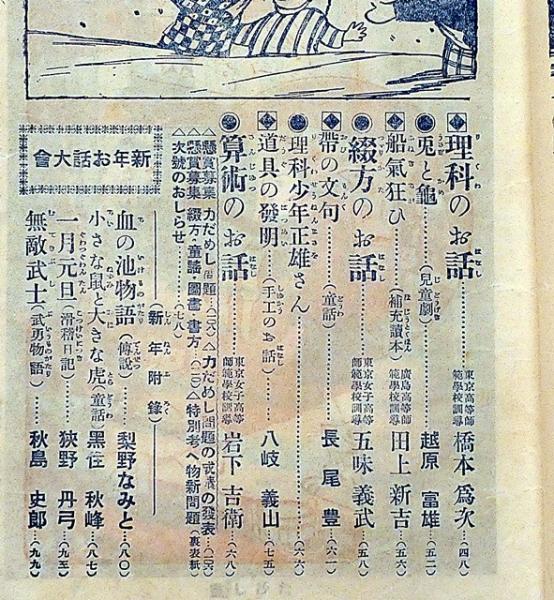 理科のお話 東京高等師範學校訓導 橋本爲次 (四八)
兎と龜 (兒童劇) 越原富雄 (五二)
船氣狂ひ (補充讀本) 廣島高等師範學校訓導 田上新吉 (五六)
綴方のお話 東京女子高等師範學校訓導 五味義武 (五八)
帶の文句 (童話) 長尾豊 (六一)
理科少年正雄さん (六六)
道具の發明 (手工のお話) 八岐義山 (七五)
算術のお話 東京女子高等師範學校訓導 岩下吉衛 (六八)
△懸賞募集 力だめし問題 △力だめし問題の成績の發表
△懸賞募集 綴方、童謠、圖畫、書方 △特別考へ物新問題 (裏表紙)
△次號のおしらせ (七八)
(新年附錄)
新年お話大會
血の池物語 (傳說) 梨野なみと (八〇)
小さな鼠と大きな虎 (童話) 黑住秋峰 (八七)
一月元旦 (滑稽日記) 狹野丹弓 (九五)
無敵武士 (武勇物語) 秋島史郎 (九九)